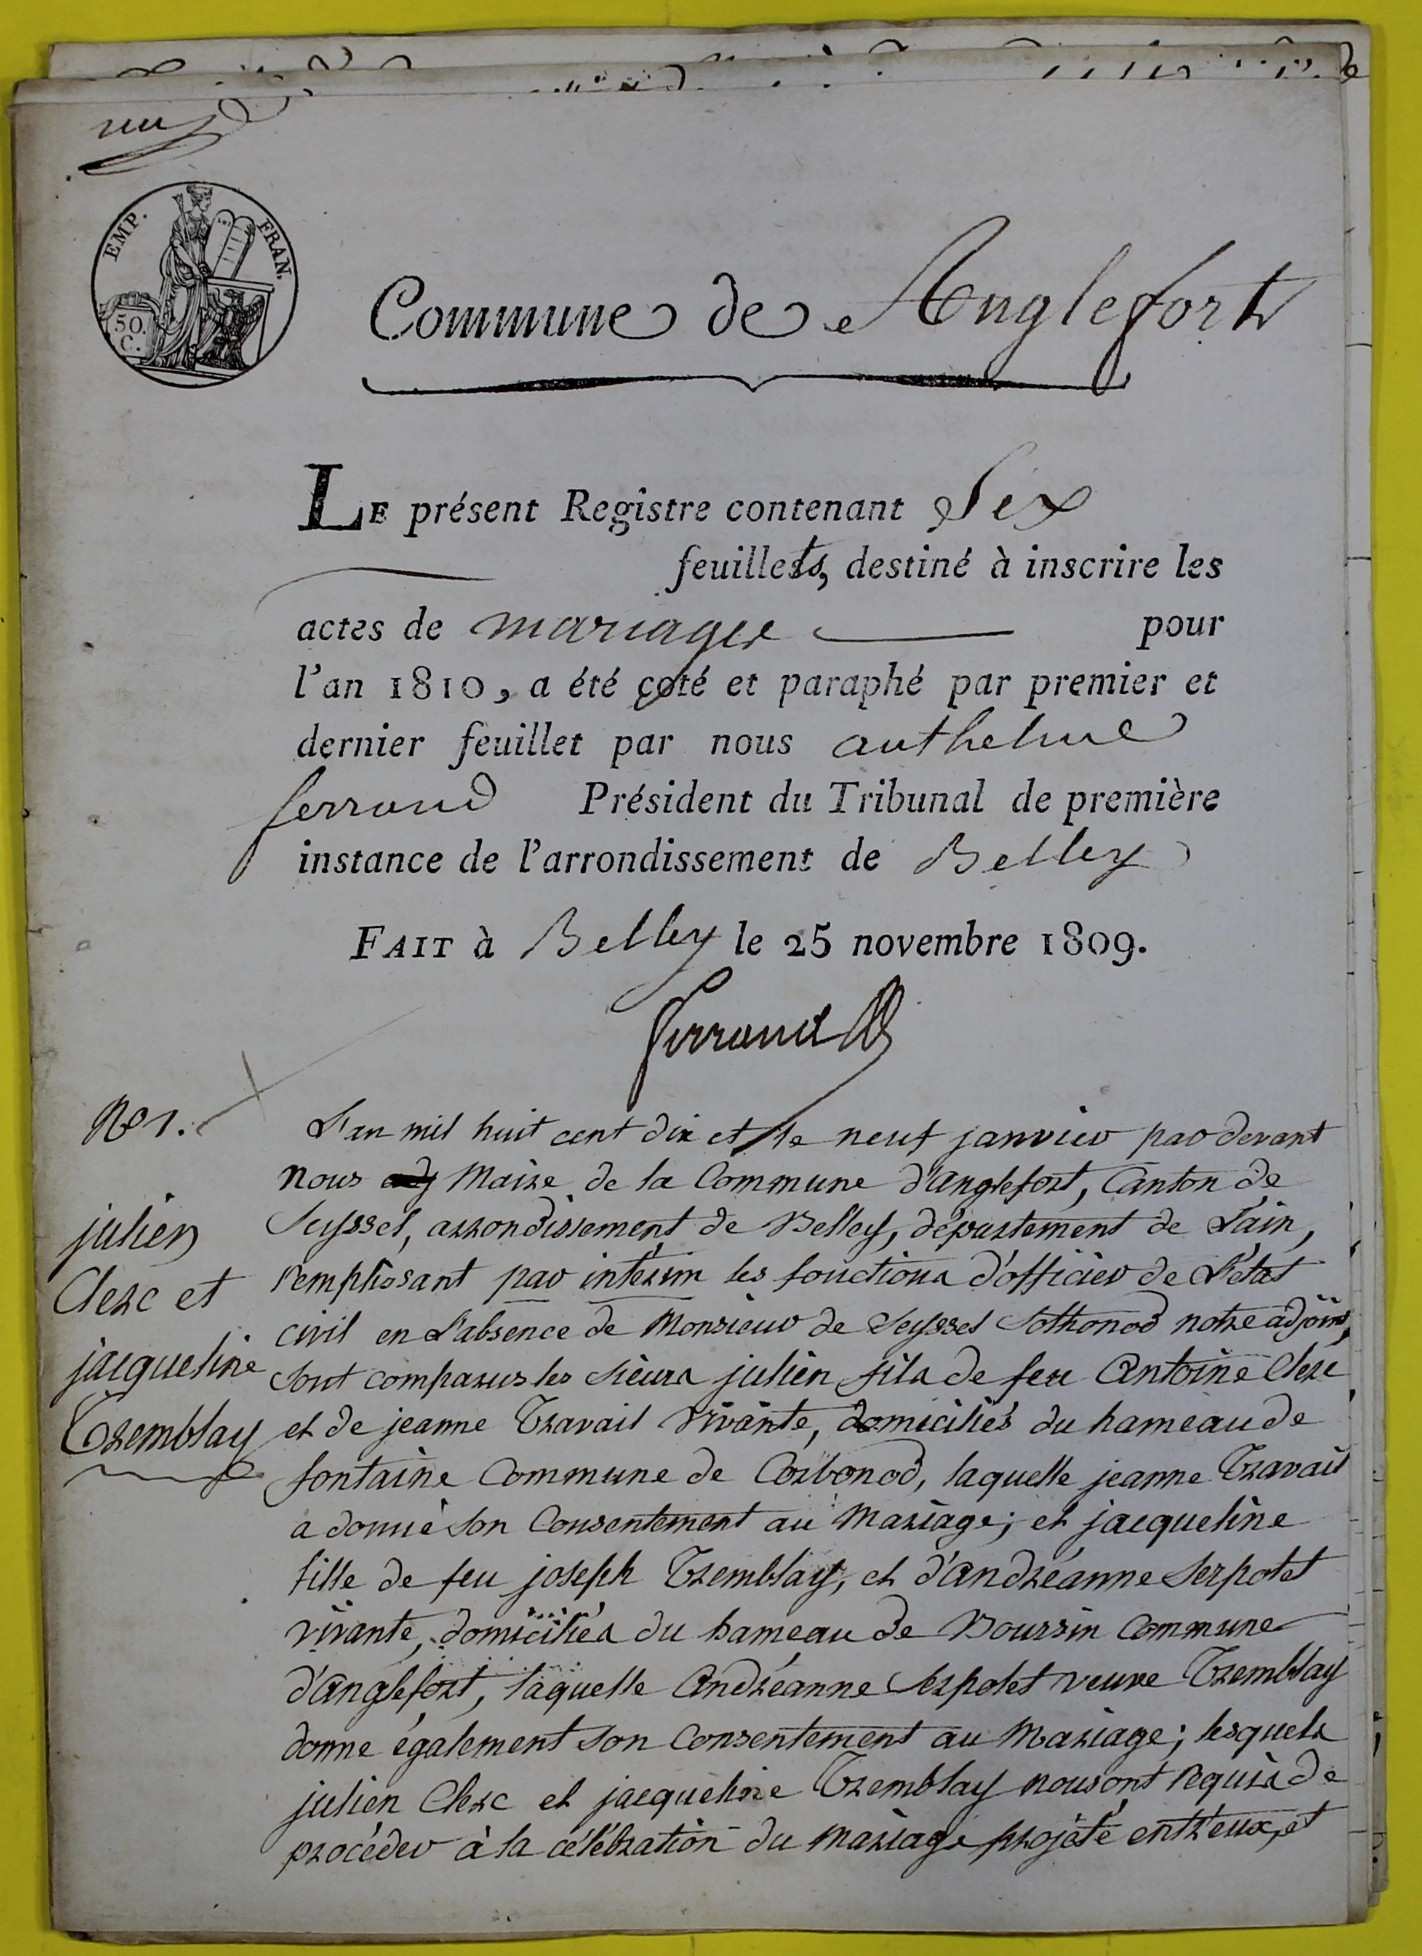 EMP. FRAN.
50.
C.
Commune de Anglefort
LE présent Registre contenant Six
feuillets, destiné à inscrire les
actes de mariages pour
l'an 1810, a été coté et paraphé par premier et
dernier feuillet par nous anthelme
ferrand Président du Tribunal de première
instance de l'arrondissement de Belley
FAIT à Belley le 25 novembre 1809.
Ferrand
No 1.
julien
Clerc et
jacqueline
Tremblay
L'an mil huit cent dix et le neuf janvier par devant
nous Maire de la Commune d'anglefort, Canton de
Seyssel, arrondissement de Belley, département de L'ain,
remplissant par interim les fonctions d'officier de L'état
civil en L'absence de Monsieur de Seyssel Sothonod notre adjoint,
sont comparus les sieurs julien fils de feu Antoine Clerc
et de jeanne Travail vivante, domiciliés du hameau de
fontaine Commune de Corbonod, laquelle jeanne Travail
a donné son Consentement au Mariage; et jacqueline
fille de feu joseph Tremblay, et d'andréanne Serpolet
vivante, domiciliés du hameau de Boursin Commune
d'anglefort, laquelle andréanne Serpolet veuve Tremblay
donne également son Consentement au Mariage; lesquels
julien Clerc et jacqueline Tremblay nous ont requis de
procéder à la célébration du Mariage projeté entr'eux, et